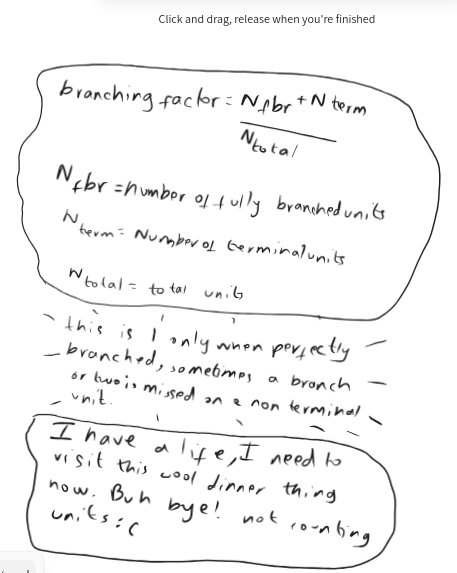 Click and drag, release when you're finished
branching factor = Nfbr + N term
Ntotal
Nfbr = number of fully branched units
Nterm = Number of terminal units
Ntotal = total units
this is 1 only when perfectly
branched, sometimes a branch
or two is missed on a non terminal
unit.
I have a life, I need to
visit this cool dinner thing
now. Buh bye! not counting
units :(